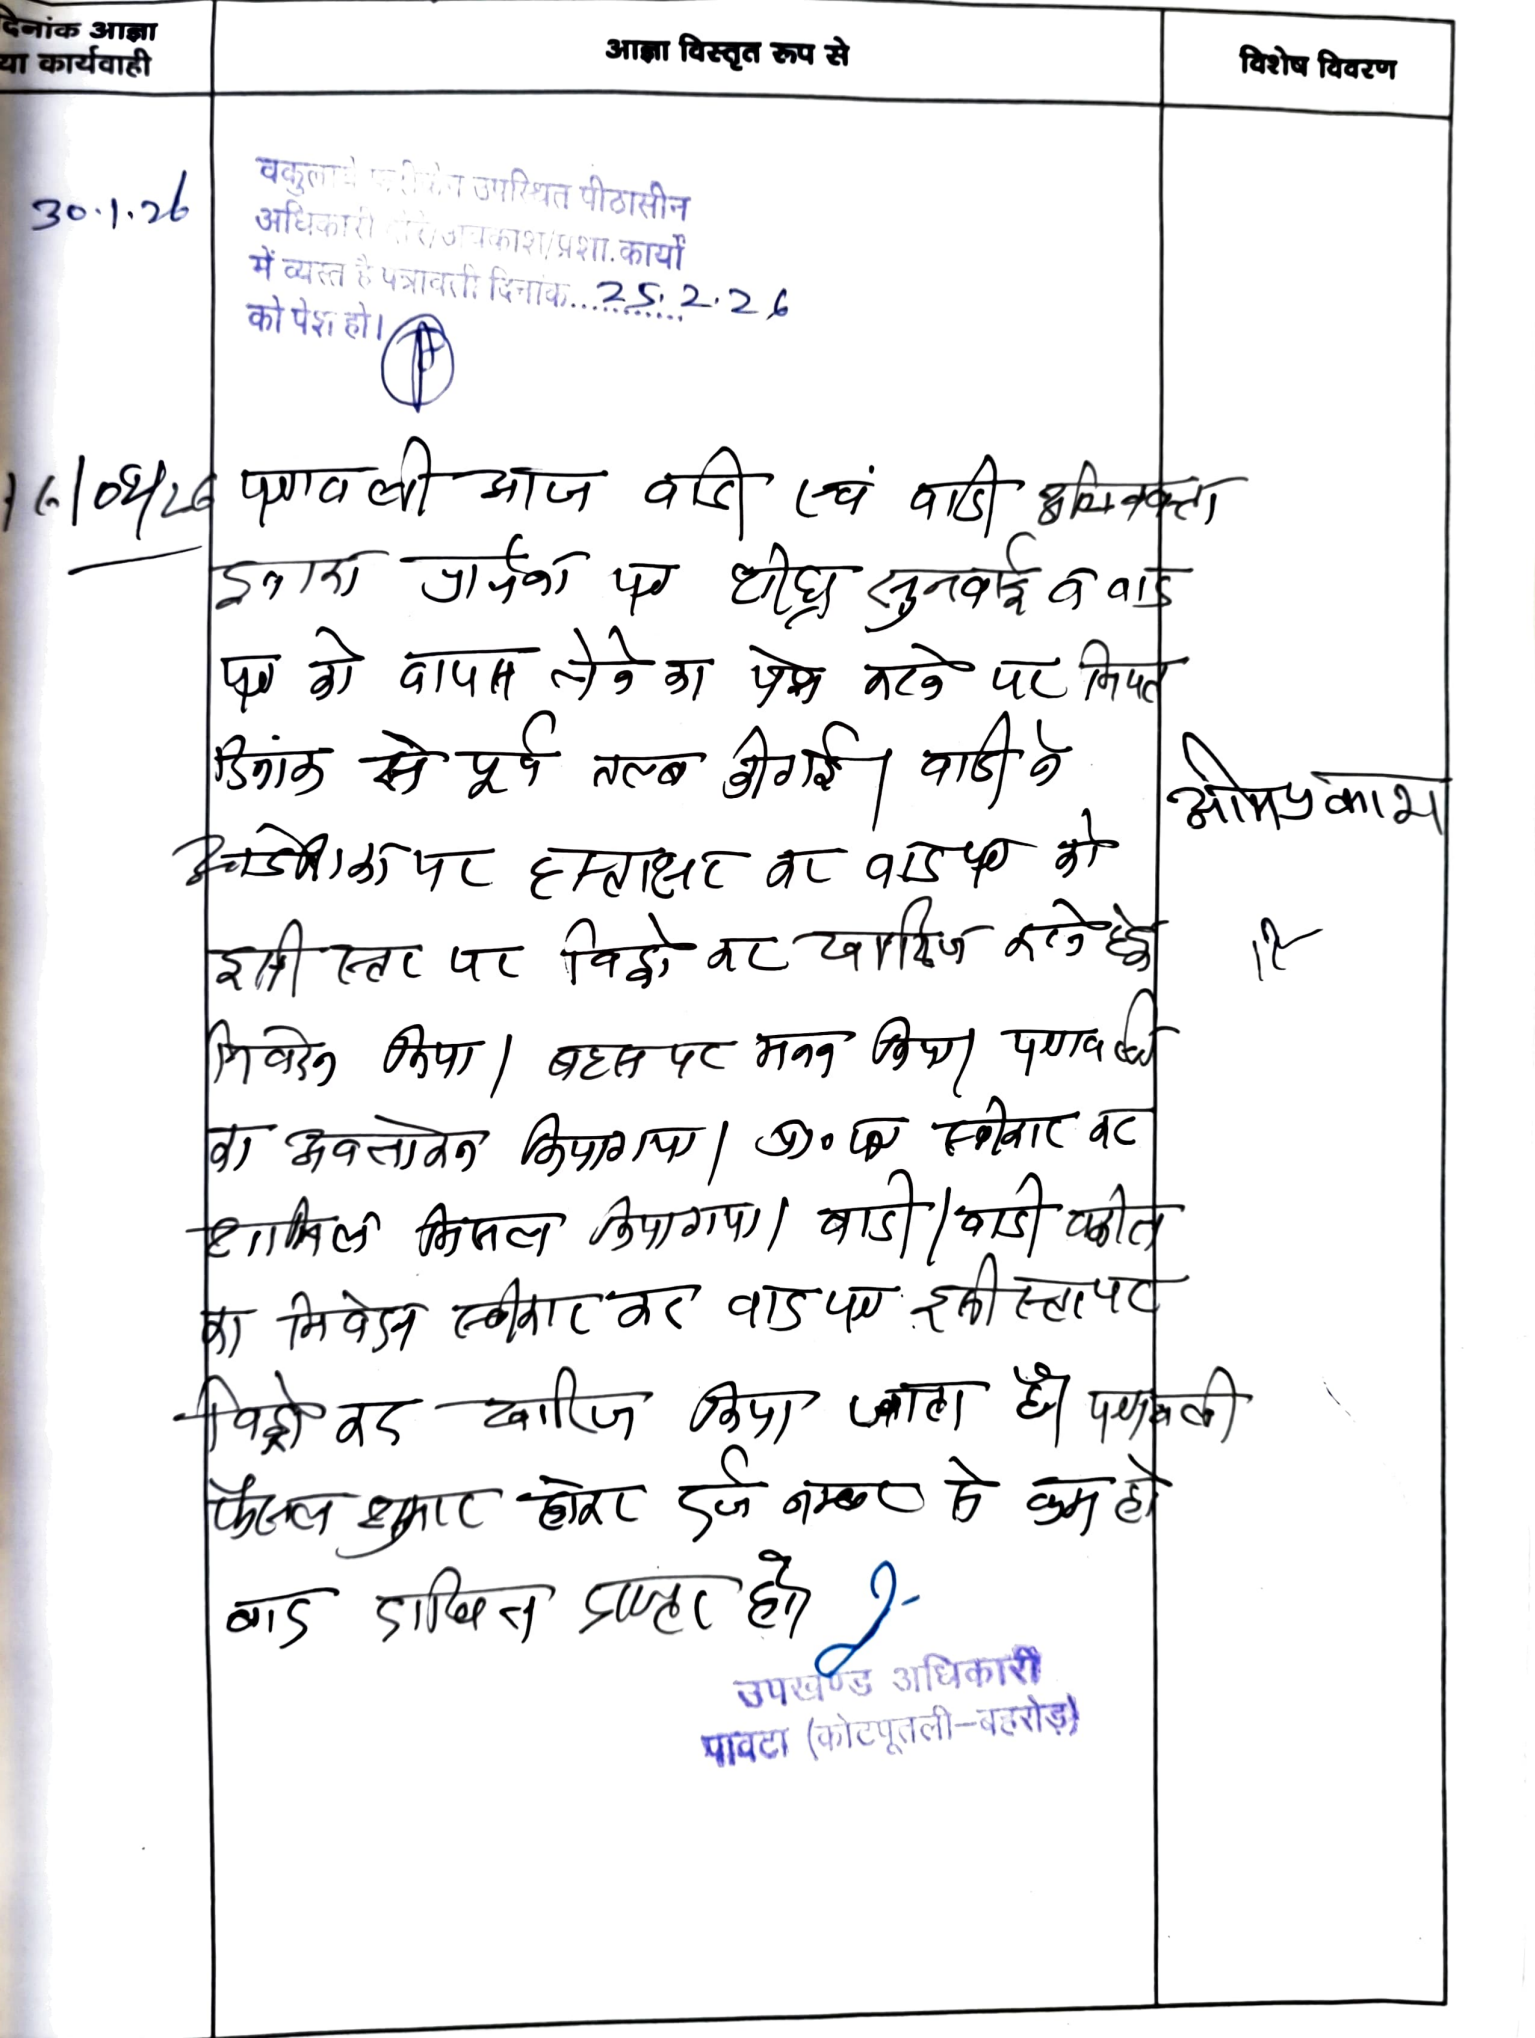 दिनांक आज्ञा
या कार्यवाही
आज्ञा विस्तृत रूप से
विशेष विवरण
30.1.26
वकुलाये फरीकेन उपस्थित पीठासीन
अधिकारी दौरे/अवकाश/प्रशा.कार्यो
में व्यस्त है पत्रावली दिनांक...25.2.26
को पेश हो।
पत्रावली आज वादी एवं वादी अधिवक्ता
द्वारा प्रार्थना पत्र शीघ्र सुनवाई व वाद
पत्र को वापस लेने का पेश करने पर नियत
दिनांक से पूर्व तलब की गई। वादी ने
पर हस्ताक्षर कर वाद पत्र को
ओमप्रकाश
इसी स्तर पर विड्रो कर खारिज करने हेतु
निवेदन किया। बहस पर मनन किया। पत्रावली
का अवलोकन किया गया। प्रा० पत्र स्वीकार कर
शामिल मिसल किया गया। वादी/वादी वकील
का निवेदन स्वीकार कर वाद पत्र इसी स्तर पर
विड्रो कर खारिज किया जाता है। पत्रावली
फैसल शुमार होकर दर्ज नम्बर से कम हो
बाद दाखिल दफ्तर हो।
उपखण्ड अधिकारी
पावटा (कोटपूतली-बहरोड़)